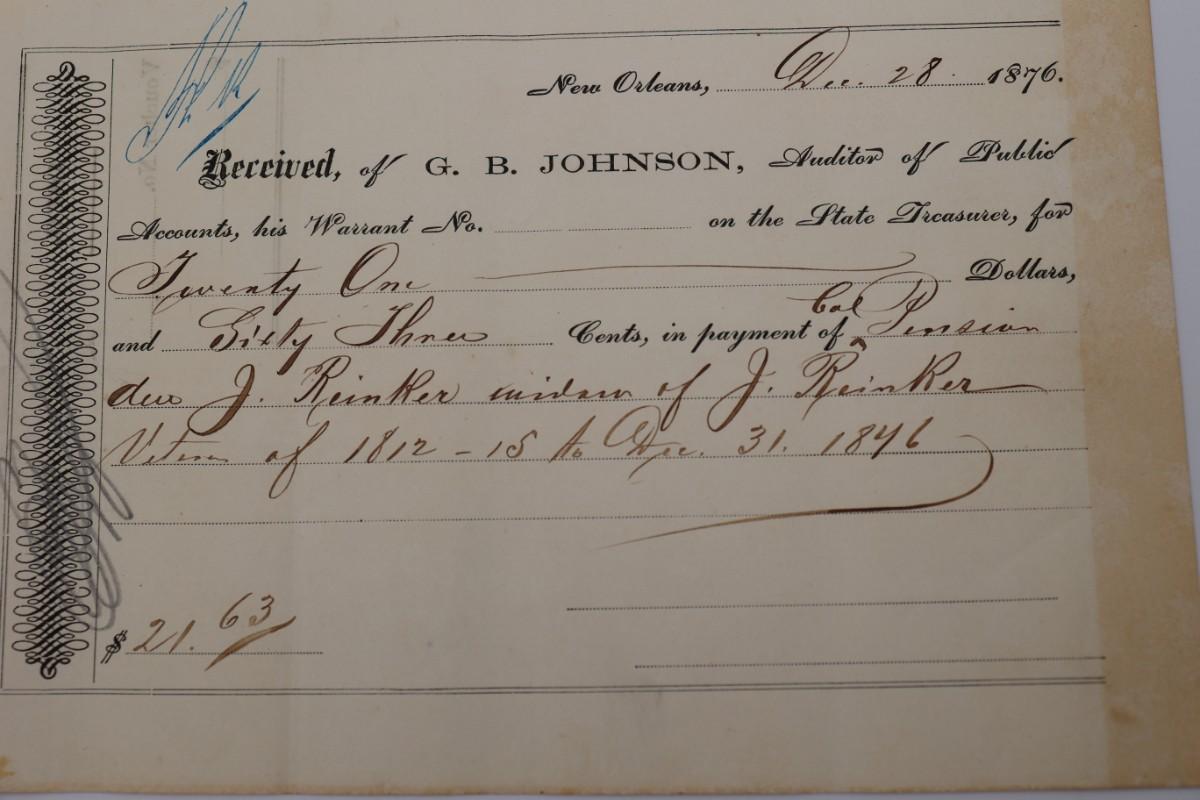 New Orleans, Dec. 28 1876.
Received, of G. B. JOHNSON, Auditor of Public
Accounts, his Warrant No. on the State Treasurer, for
Twenty One Dollars,
Col
and Sixty Three Cents, in payment of ‸ Pension
due J. Reinker widow of J. Reinker
Veteran of 1812 - 15 to Dec. 31. 1846
$ 21.63